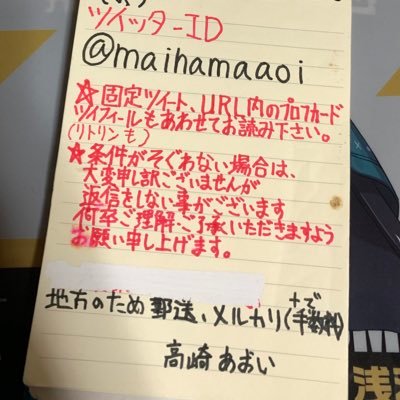 ツイッターID
@maihamaaoi
☆固定ツイート、URL内のプロフカード
ツイフィールもあわせてお読み下さい。
(リトリンも)
☆条件がそぐわない場合は、
大変申し訳ございませんが
返信をしない事がございます
何卒ご理解ご了承いただきますよう
お願い申し上げます。
地方のため郵送、メルカリ(手数料)
高崎あおい
浅